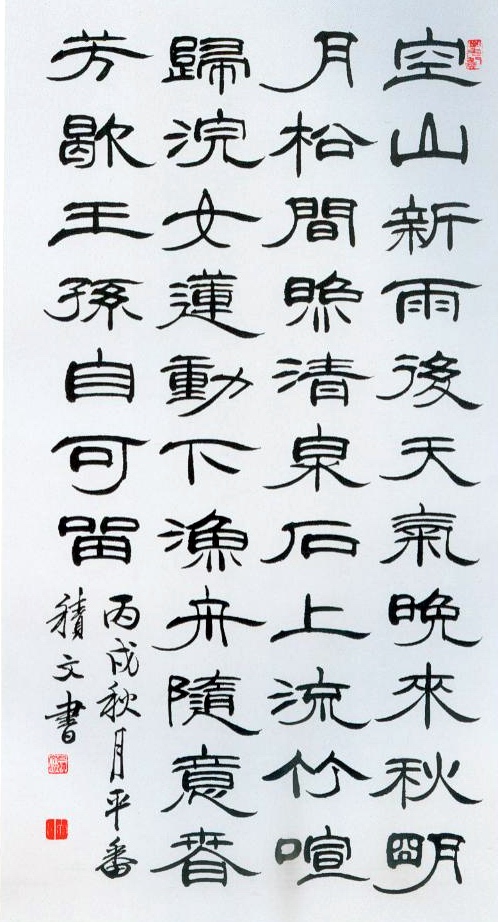 空山新雨後天氣晚來秋明
月松間照清泉石上流竹喧
歸浣女蓮動下漁舟隨意春
芳歇王孫自可留
丙戌秋月平番
積文書